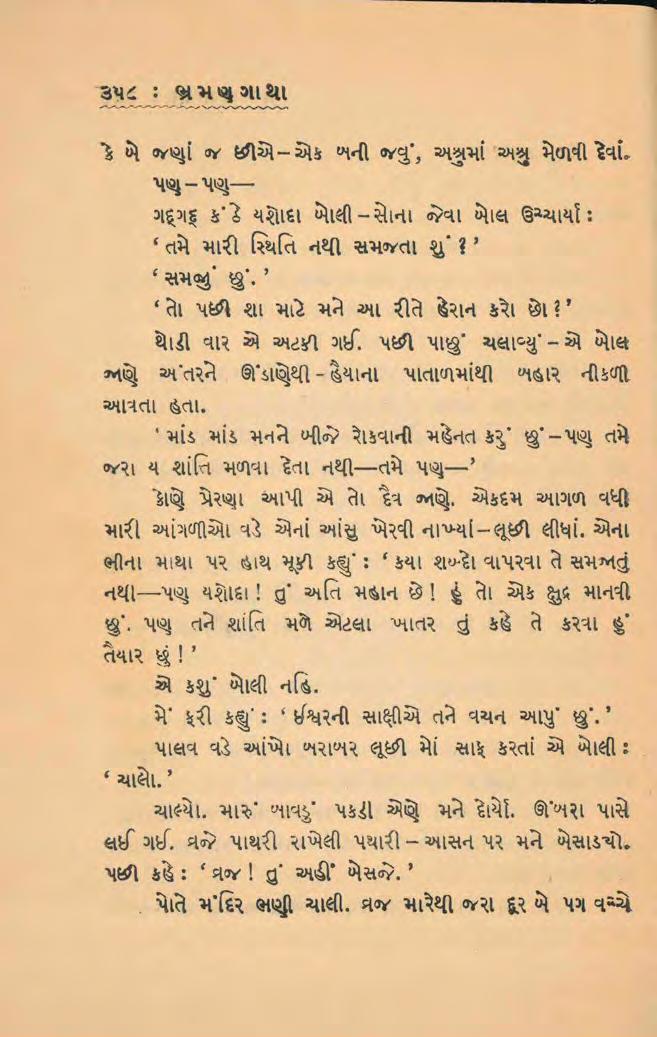 ૩૫૮ : ભ્રમણગાથા
કે બે જણાં જ છીએ–એક બની જવું, અશ્રુમાં અશ્રુ મેળવી દેવાં.
પણ – પણ—
ગદ્ગદ્ કંઠે યશોદા બોલી – સોના જેવા બોલ ઉચ્ચાર્યા :
‘ તમે મારી સ્થિતિ નથી સમજતા શું ? ’
‘ સમજું છું. ’
‘ તો પછી શા માટે મને આ રીતે હેરાન કરો છો ? ’
થોડી વાર એ અટકી ગઈ. પછી પાછું ચલાવ્યું – એ બોલ
જાણે અંતરને ઊંડાણેથી – હૈયાના પાતાળમાંથી બહાર નીકળી
આવતા હતા.
‘ માંડ માંડ મનને બીજે રોકવાની મહેનત કરું છું – પણ તમે
જરા ય શાંતિ મળવા દેતા નથી—તમે પણ—’
કોણે પ્રેરણા આપી એ તો દૈવ જાણે. એકદમ આગળ વધી
મારી આંગળીઓ વડે એનાં આંસુ ખેરવી નાખ્યાં–લૂછી લીધાં. એના
ભીના માથા પર હાથ મૂકી કહ્યું : ‘ કયા શબ્દો વાપરવા તે સમજાતું
નથી—પણ યશોદા ! તું અતિ મહાન છે ! હું તો એક ક્ષુદ્ર માનવી
છું. પણ તને શાંતિ મળે એટલા ખાતર તું કહે તે કરવા હું
તૈયાર છું ! ’
એ કશું બોલી નહિ.
મેં ફરી કહ્યું : ‘ ઈશ્વરની સાક્ષીએ તને વચન આપું છું. ’
પાલવ વડે આંખો બરાબર લૂછી મોં સાફ કરતાં એ બોલી :
‘ ચાલો. ’
ચાલ્યો. મારું બાવડું પકડી એણે મને દોર્યો. ઊંબરા પાસે
લઈ ગઈ. વ્રજે પાથરી રાખેલી પથારી – આસન પર મને બેસાડયો.
પછી કહે : ‘ વ્રજ ! તું અહીં બેસજે. ’
પોતે મંદિર ભણી ચાલી. વ્રજ મારેથી જરા દૂર બે પગ વચ્ચે